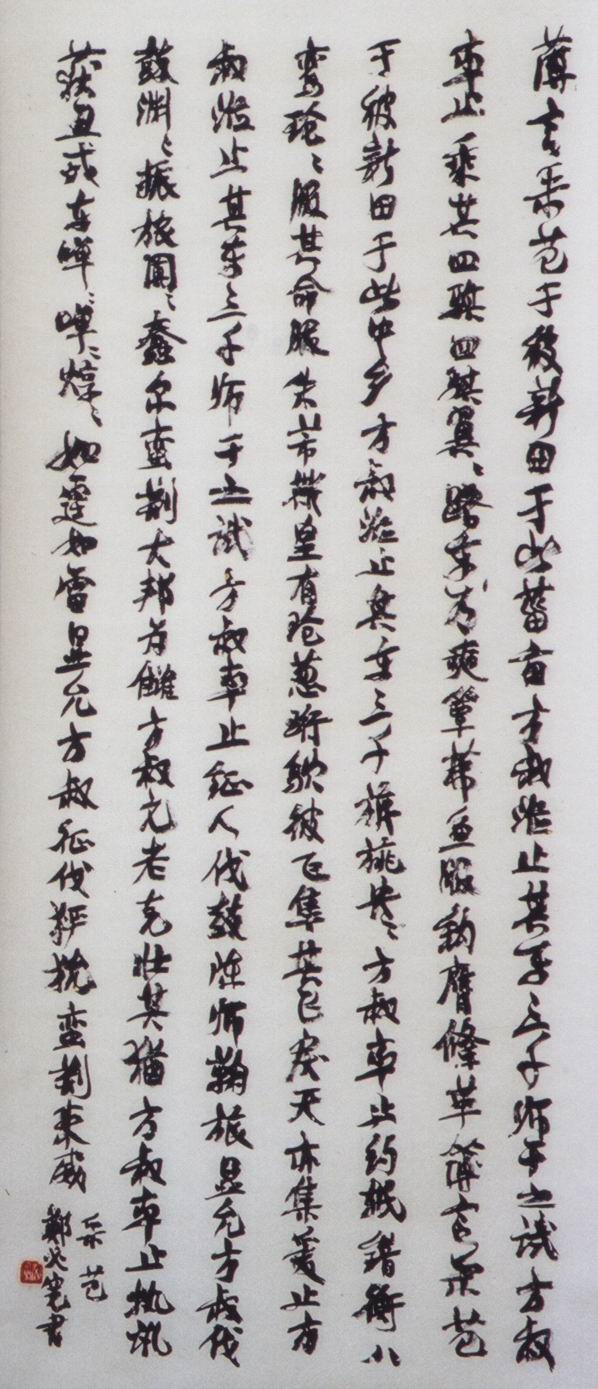 薄言采芑于彼新田于此菑畝方叔涖止其车三千师干之试方叔
率止乘其四骐四骐翼〻路车有奭簟茀鱼服钩膺鞗革薄言采芑
于彼新田于此中乡方叔涖止其车三千旂旐央〻方叔率止约軝错衡八
鸾玱〻服其命服朱芾斯皇有玱葱珩鴥彼飞隼其飞戾天亦集爰止方
叔涖止其车三千师干之试方叔率止钲人伐鼓陈师鞠旅显允方叔伐
鼓渊〻振旅阗〻蠢尔蛮荆大邦为雠方叔元老克壮其犹方叔率止执讯
获丑戎车啴〻啴〻焞〻如霆如雷显允方叔征伐玁狁蛮荆来威
采芑
书